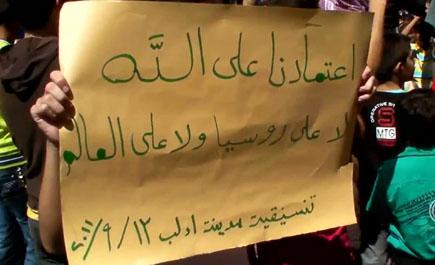 اعتمادنا على الله
لا على روسيا ولا على العالم
تنسيقية مدينة ادلب ١٢/٩/
OPERATIVE BIT
MTG